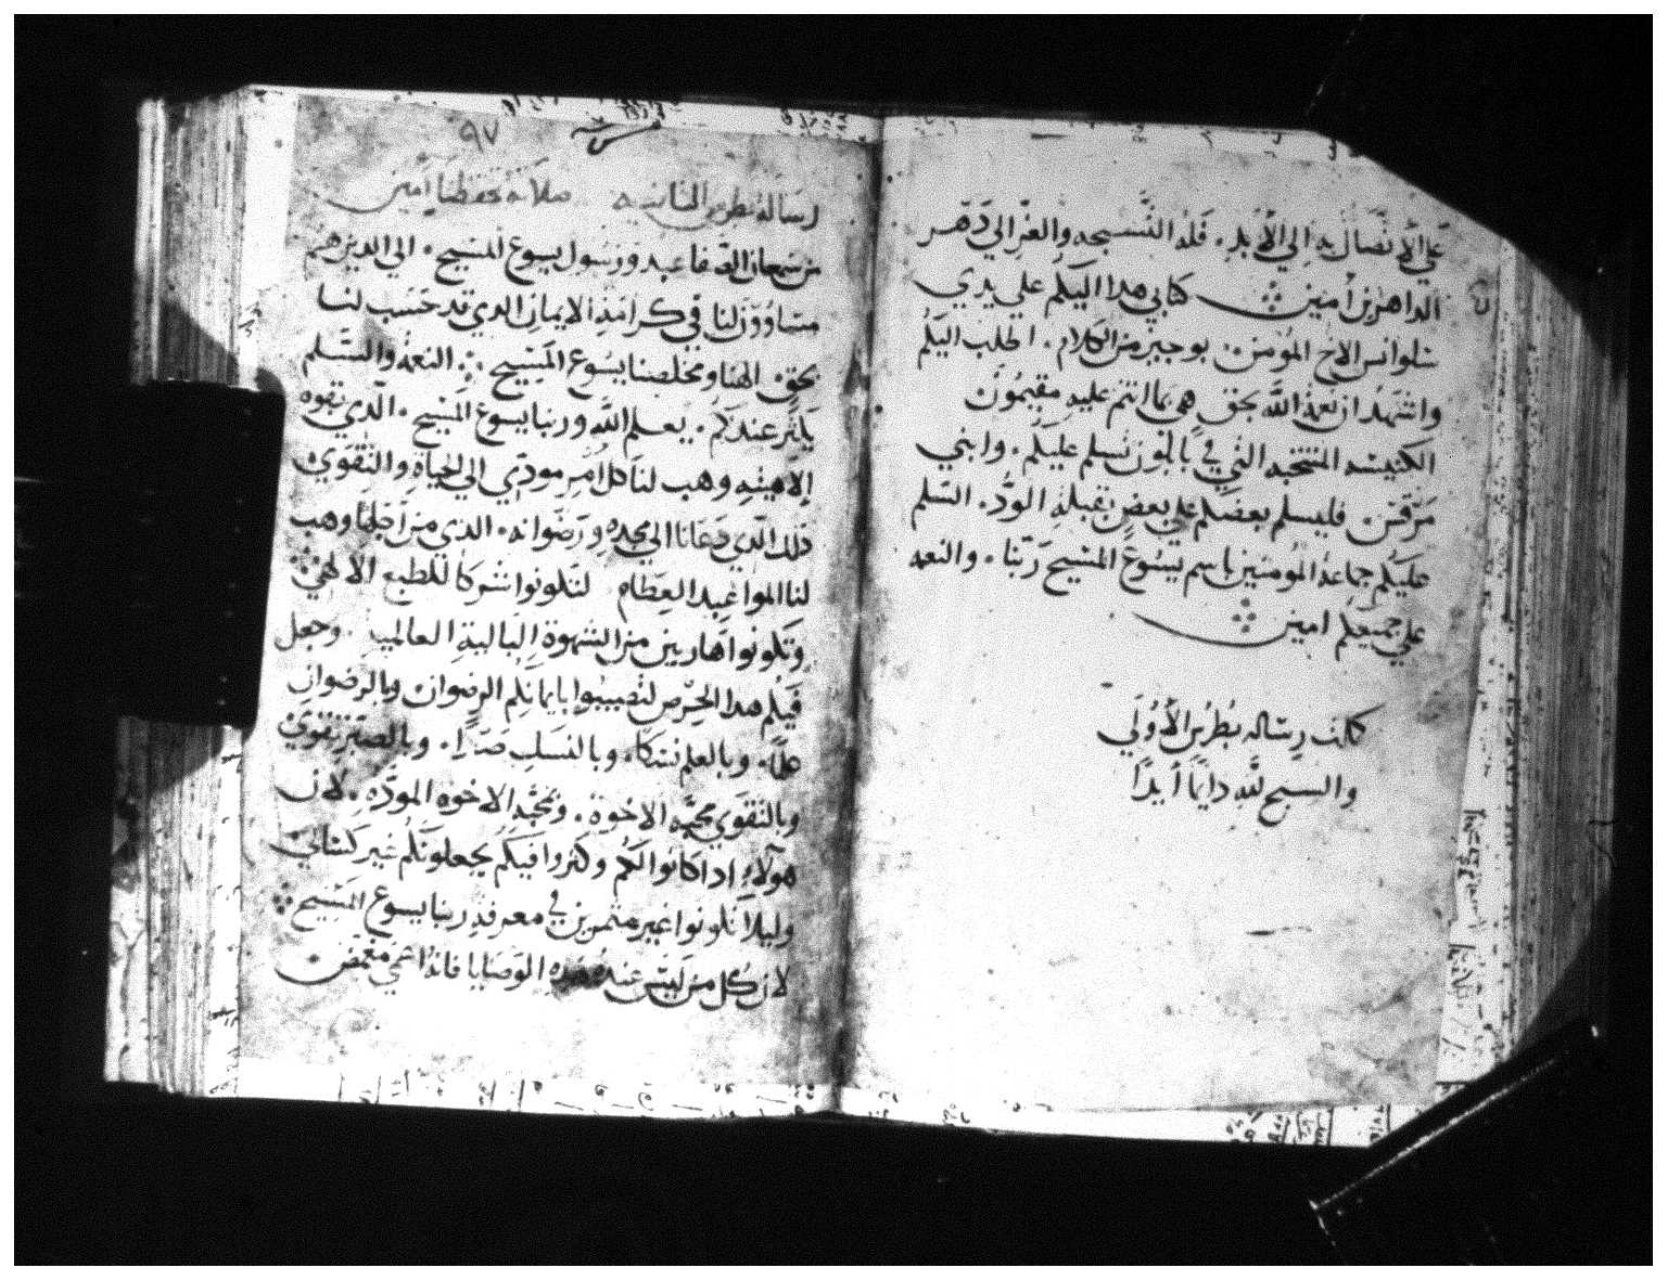 علي الاتصال به الي الأبد. فله التسبحه والعز الي دهر
الداهرين امين كتابي هدا اليكم علي يدي
سلوانس الاخ المومن. بوجيز من الكلام. اطلب اليكم
واشهد ان نعمة الله بحق هي ما انتم عليه مقيمون
الكنيسه المنتخبه التي في بابلون تسلم عليكم. وابني
مرقس. فليسلم بعضكم علي بعض بقبلة الود. السلم
عليكم جماعة المومنين باسم يسوع المسيح ربنا. والنعمه
علي جميعكم امين
كملت رساله بطرس الأولي
والسبح لله دايما أبدا
٩٧
رسالة بطرس الثانيه صلاته تحفظنا امين
من سمعان الصفا عبد ورسول يسوع المسيح. الي الدين هم
متساوون لنا في كرامة الايمان الدي قد حسب لنا
بحق. الهنا ومخلصنا يسوع المسيح. النعمه والسلم
يكثر عندكم. يعلم الله وربنا يسوع المسيح. الدي بقوه
إلاهيته وهب لنا كل امر مودي الي الحياة والتقوي
دلك الدي دعانا الي مجده ورضوانه. الدي من اجلها وهب
لنا المواعيد العظام لتكونوا شركا للطبع الالهي
وتكونوا هاربين من الشهوة البالية العالمية. وجعل
فيكم هدا الحرص لتصيبوا بايمانكم الرضوان وبالرضوان
علما. وبالعلم نسكا. وبالنسك صبرا. وبالصبر تقوي
وبالتقوي محبة الاخوة. ومحبة الاخوه الموده. لان
هولاء ادا كانوا لكم وكثروا فيكم يجعلونكم غير كسالي
وليلا تكونوا غير مثمرين في معرفة ربنا يسوع المسيح
لان كل من ليس عنده هده الوصايا فانه اعمي مغمض